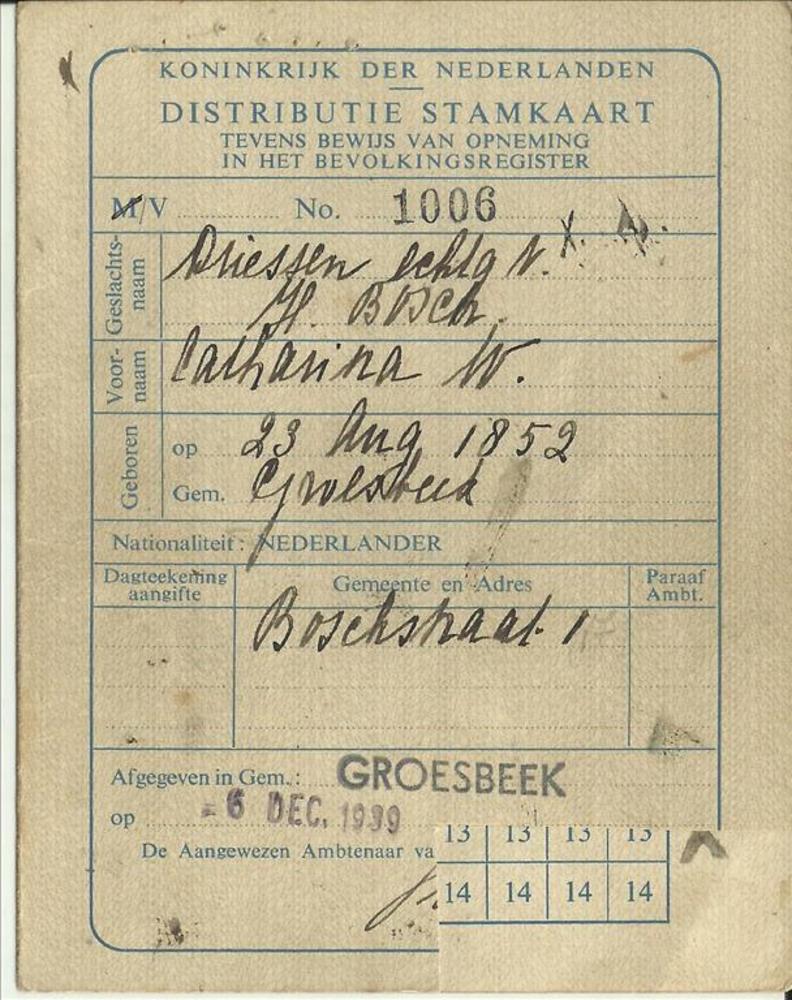 KONINKRIJK DER NEDERLANDEN
DISTRIBUTIE STAMKAART
TEVENS BEWIJS VAN OPNEMING
IN HET BEVOLKINGSREGISTER
M/V No. 1006
Geslachtsnaam Driessen echtg v.
H. Bosch.
Voornaam Catharina W.
Geboren op 23 Aug 1852
Gem. Groesbeek
Nationaliteit: NEDERLANDER
Dagteekening aangifte Gemeente en Adres Paraaf Ambt.
Boschstraat 1
Afgegeven in Gem.: GROESBEEK
op - 6 DEC. 1939
De Aangewezen Ambtenaar va
13 13 13 13
14 14 14 14